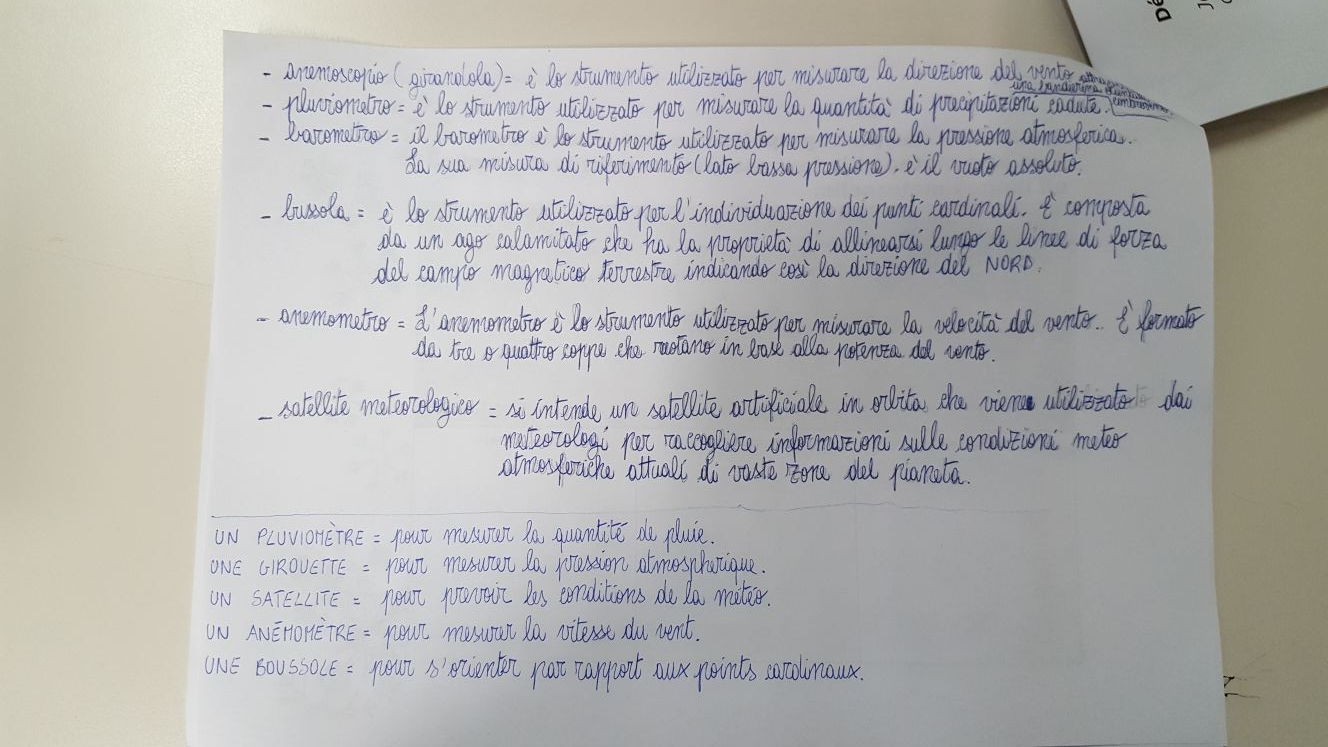 - anemoscopio (girandola) = è lo strumento utilizzato per misurare la direzione del vento
una banderina
- pluviometro = è lo strumento utilizzato per misurare la quantità di precipitazioni cadute.
- barometro = il barometro è lo strumento utilizzato per misurare la pressione atmosferica.
La sua misura di riferimento (lato bassa pressione). è il vuoto assoluto.
- bussola = è lo strumento utilizzato per l'individuazione dei punti cardinali. È composta
da un ago calamitato che ha la proprietà di allinearsi lungo le linee di forza
del campo magnetico terrestre indicando così la direzione del NORD.
- anemometro = L'anemometro è lo strumento utilizzato per misurare la velocità del vento.. È formato
da tre o quattro coppe che ruotano in base alla potenza del vento.
- satellite meteorologico = si intende un satellite artificiale in orbita che viene utilizzato dai
meteorologi per raccogliere informazioni sulle condizioni meteo
atmosferiche attuali di vaste zone del pianeta.
UN PLUVIOMÈTRE = pour mesurer la quantité de pluie.
UNE GIROUETTE = pour mesurer la pression atmospherique.
UN SATELLITE = pour prevoir les conditions de la météo.
UN ANÉMOMÈTRE = pour mesurer la vitesse du vent.
UNE BOUSSOLE = pour s'orienter par rapport aux points cardinaux.
Dé